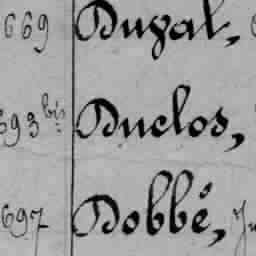 669 Duval,
693 bis Duclos,
697 Dobbé,